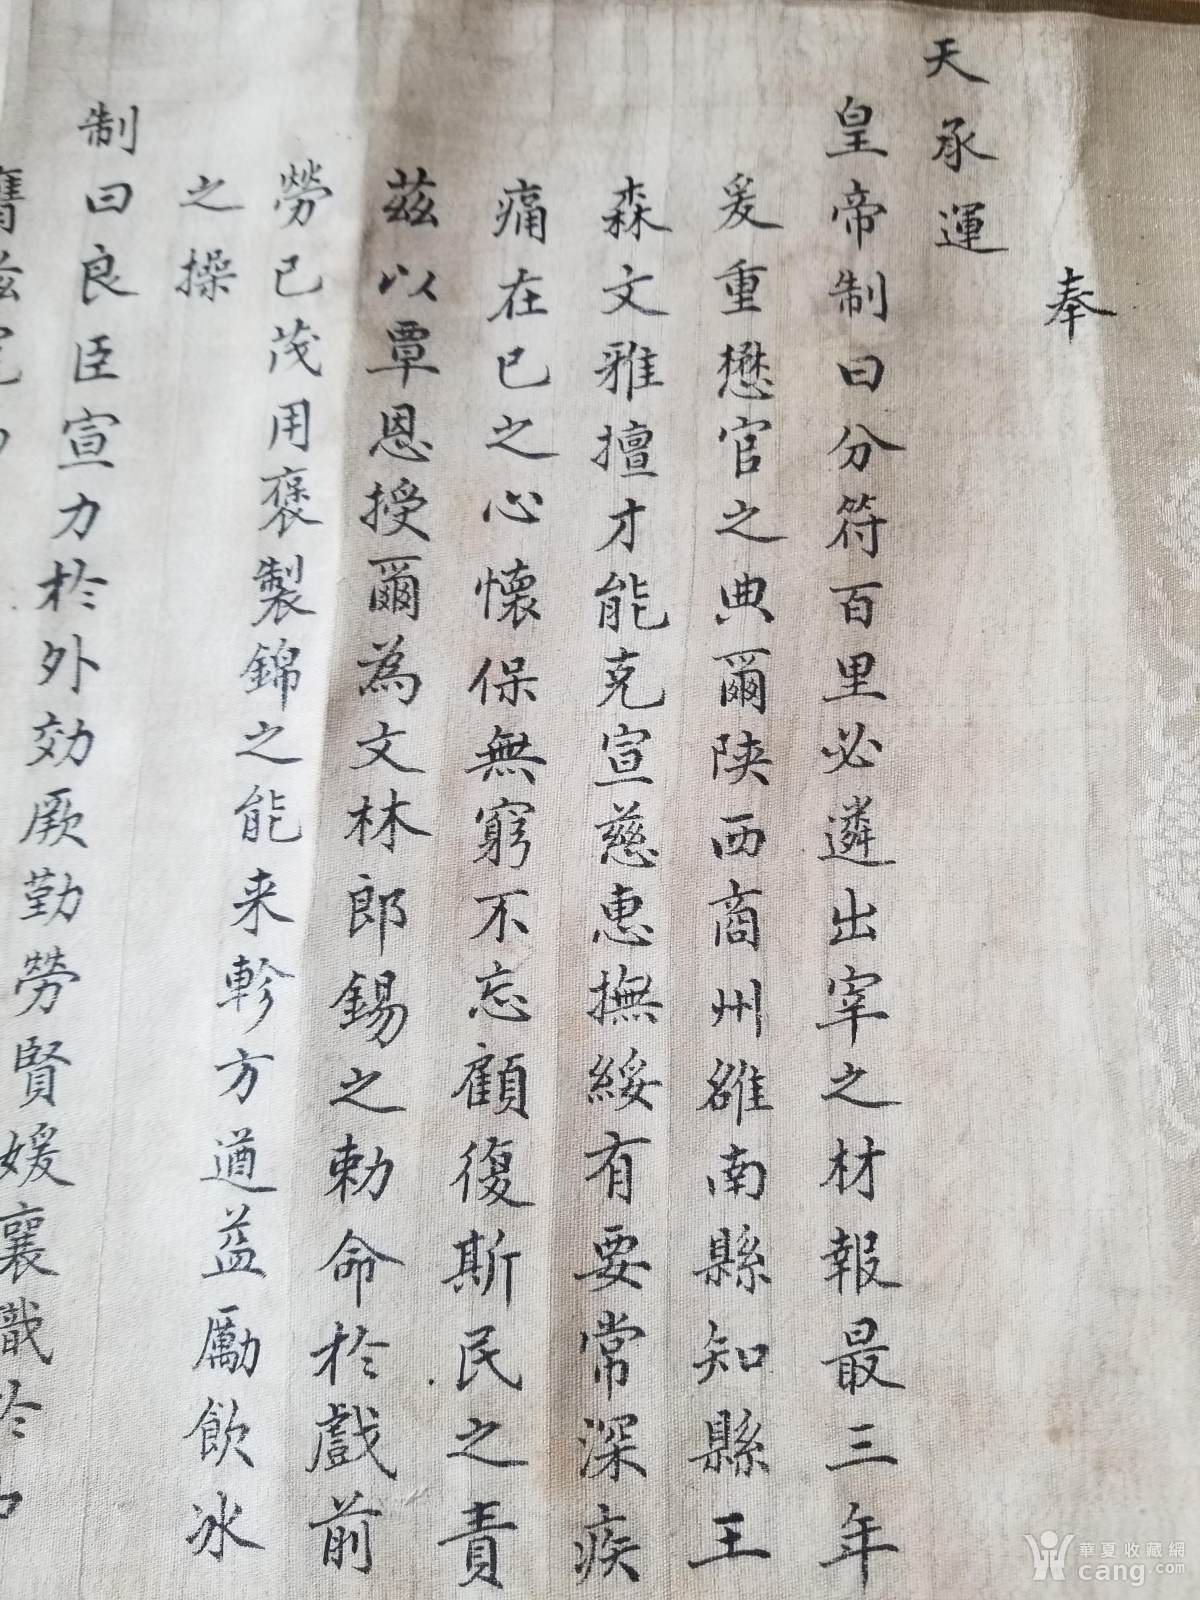 奉
天承運
皇帝制曰分符百里必遴出宰之材報最三年
爰重懋官之典爾陝西商州雒南縣知縣王
森文雅擅才能克宣慈惠撫綏有要常深疾
痛在已之心懷保無窮不忘顧復斯民之責
茲以覃恩授爾為文林郎錫之勅命於戲前
勞已茂用褒製錦之能来軫方遒益勵飲冰
之操
制曰良臣宣力於外効厥勤勞賢媛襄職於
膺茲
華夏收藏網
cang.com